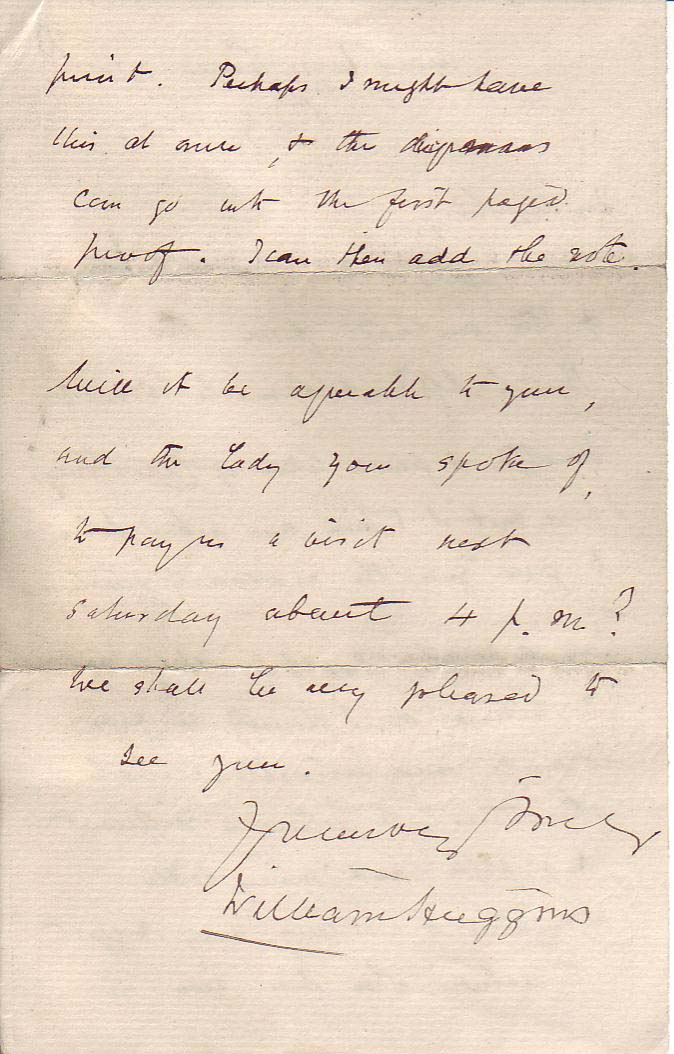 print. Perhaps I might have
this at once, & the diagrams
can go into the first paged
proof. I can then add the note.
Will it be agreeable to you,
and the lady you spoke of,
to pay us a visit next
Saturday about 4 p.m?
We shall be very pleased to
see you.
Yours very truly
William Huggins